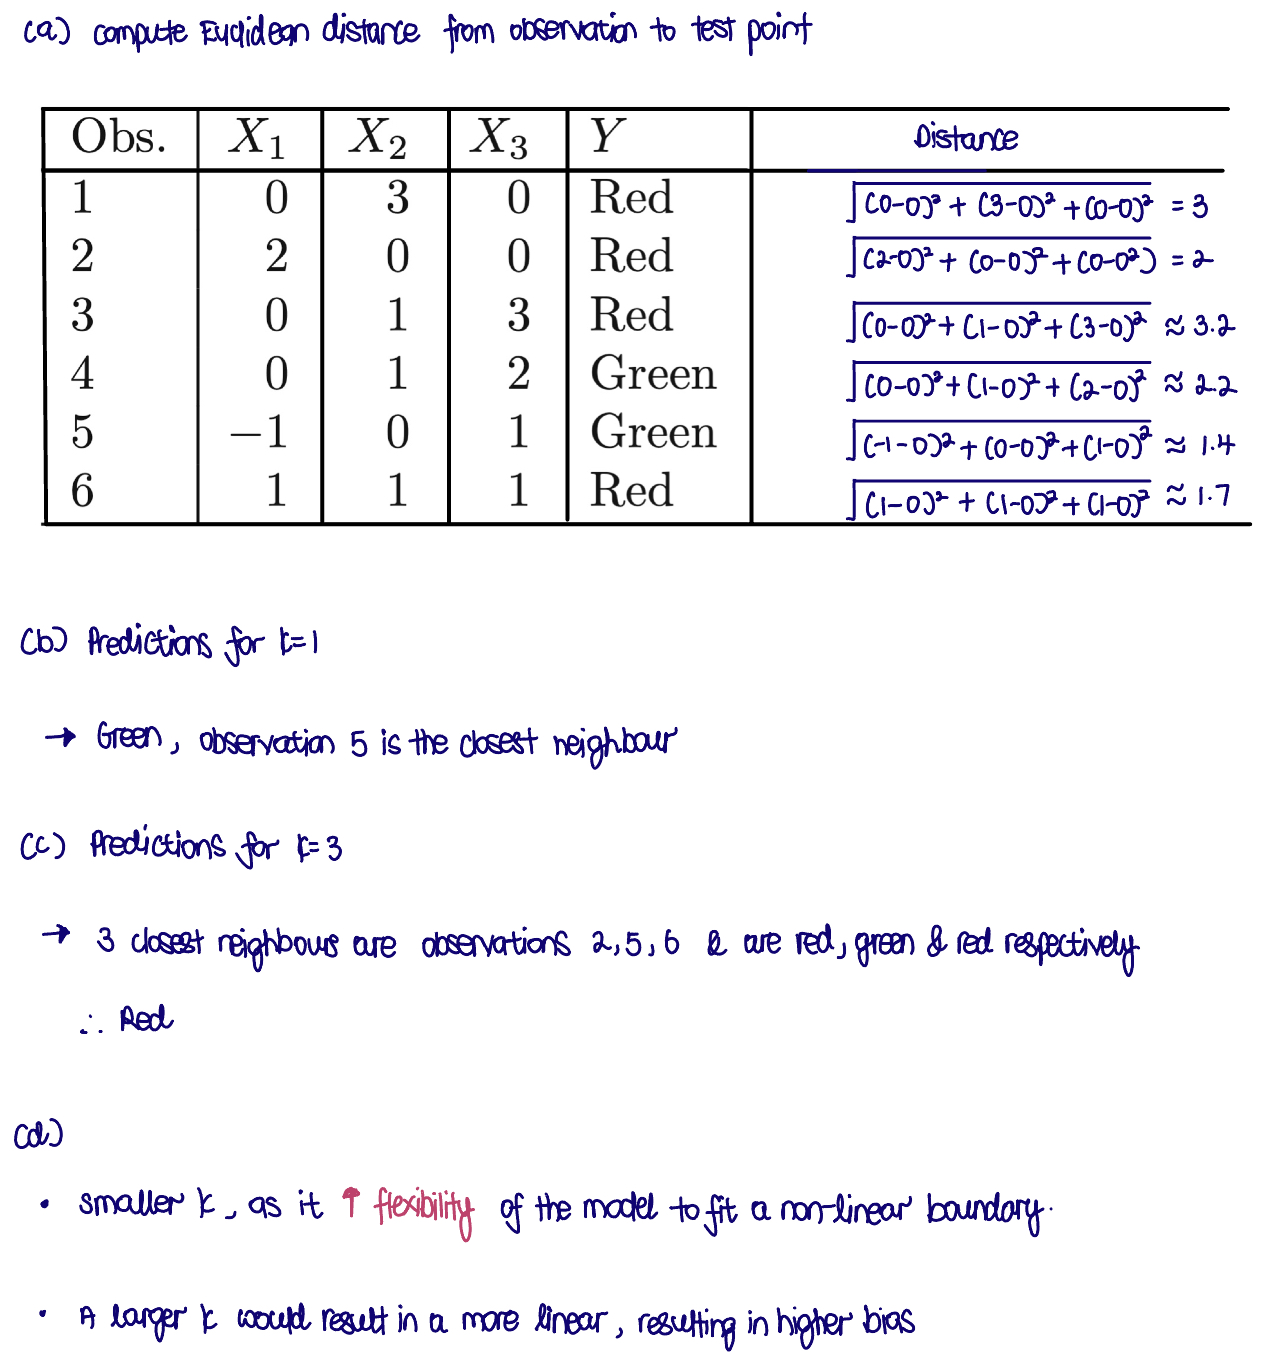 (a) compute Euclidean distance from observation to test point
Obs. X₁ X₂ X₃ Y Distance
1 0 3 0 Red √(0-0)² + (3-0)² + (0-0)² = 3
2 2 0 0 Red √(2-0)² + (0-0)² + (0-0²) = 2
3 0 1 3 Red √(0-0)² + (1-0)² + (3-0)² ≈ 3.2
4 0 1 2 Green √(0-0)² + (1-0)² + (2-0)² ≈ 2.2
5 −1 0 1 Green √(-1-0)² + (0-0)² + (1-0)² ≈ 1.4
6 1 1 1 Red √(1-0)² + (1-0)² + (1-0)² ≈ 1.7
(b) Predictions for k=1
→ Green, observation 5 is the closest neighbour
(c) Predictions for k=3
→ 3 closest neighbours are observations 2,5,6 & are red, green & red respectively
∴ Red
(d)
• smaller k, as it ↑ flexibility of the model to fit a non-linear boundary.
• A larger k would result in a more linear, resulting in higher bias